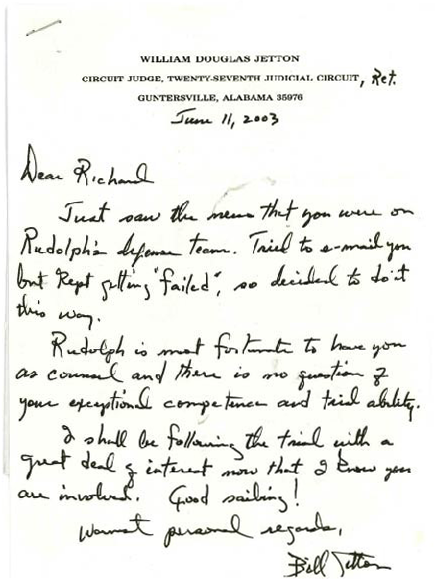 WILLIAM DOUGLAS JETTON
CIRCUIT JUDGE, TWENTY-SEVENTH JUDICIAL CIRCUIT, Ret.
GUNTERSVILLE, ALABAMA 35976
June 11, 2003
Dear Richard
Just saw the news that you were on
Rudolph's defense team. Tried to e-mail you
but kept getting "failed", so decided to do it
this way.
Rudolph is most fortunate to have you
as counsel and there is no question of
your exceptional competence and trial ability.
I shall be following the trial with a
great deal of interest now that I know you
are involved. Good sailing!
Warmest personal regards,
Bill Jetton